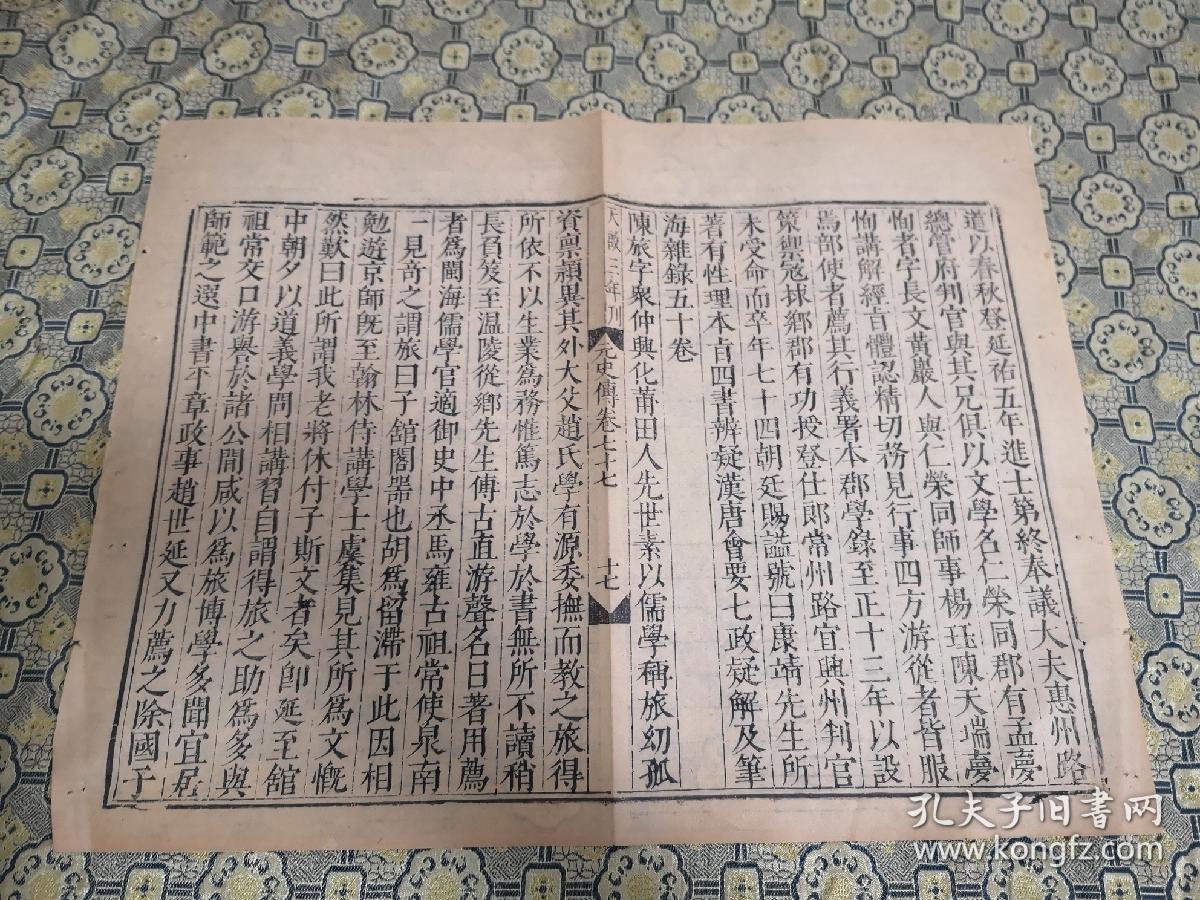 道以春秋登延祐五年進士第終奉議大夫惠州路
總管府判官與其兄俱以文學名仁榮同郡有孟夢
恂者字長文黃巖人與仁榮同師事楊珏陳天瑞夢
恂講解經旨體認精切務見行事四方游從者皆服
焉部使者薦其行義署本郡學錄至正十三年以設
策禦寇救鄉郡有功授登仕郎常州路宜興州判官
未受命而卒年七十四朝廷賜謚號曰康靖先生所
著有性理本旨四書辨疑漢唐會要七政疑解及筆
海雜錄五十卷
陳旅字衆仲興化莆田人先世素以儒學稱旅幼孤
天啟二年刊
元史傳卷七十七
十七
資禀頴異其外大父趙氏學有源委撫而教之旅得
所依不以生業為務惟篤志於學於書無所不讀稍
長負笈至温陵從鄉先生傅古直游聲名日著用薦
者為閩海儒學官適御史中丞馬雍古祖常使泉南
一見奇之謂旅曰子舘閣器也胡為留滯于此因相
勉遊京師既至翰林侍講學士虞集見其所為文慨
然歎曰此所謂我老將休付子斯文者矣即延至舘
中朝夕以道義學問相講習自謂得旅之助為多與
祖常交口游譽於諸公間咸以為旅博學多聞宜居
師範之選中書平章政事趙世延又力薦之除國子
孔夫子旧书网
www.kongfz.com